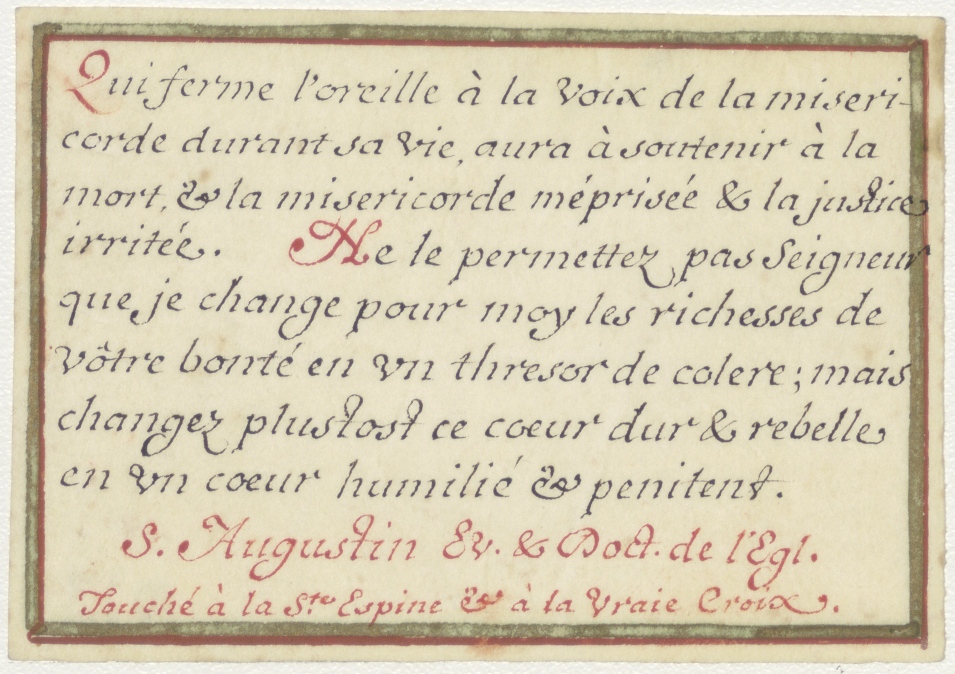 Qui ferme l'oreille à la voix de la miseri-
corde durant sa vie, aura à soutenir à la
mort, & la misericorde méprisée & la justice
irritée. Ne le permettez pas Seigneur
que je change pour moy les richesses de
vôtre bonté en vn thresor de colere; mais
changez plustost ce coeur dur & rebelle
en vn coeur humilié & penitent.
S. Augustin Ev. & Doct. de l'Egl.
Touché à la Ste Espine & à la Vraie Croix.